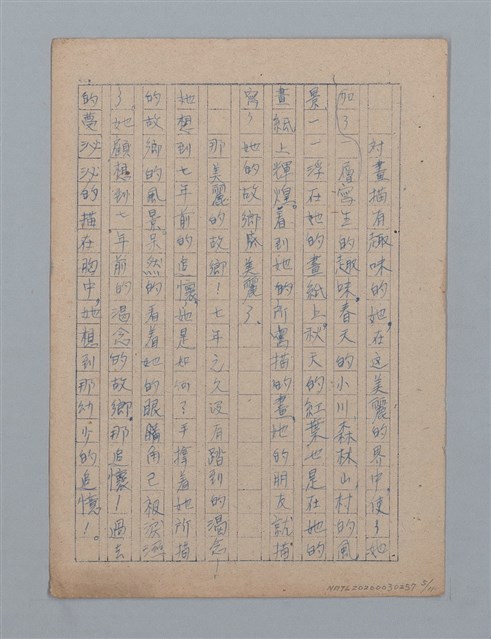 對畫描有趣味的她,在這美麗的界中使了她
加了一層寫生的趣味。春天的小川,森林,山村的風
景一一浮在她的畫紙上,秋天的紅葉也是在她的
畫紙上輝煌。看到她的所寫描的畫,她的朋友就描
寫了她的故鄉底美麗了、
那美麗的故鄉!七年之久沒有踏到的渴念!
她想到七年前的追懷。她是如何了手撐着她所描
的故鄉的風景。呆然的看着她的眼睛角已被淚溼
了。她願想到七年前的渴念的故鄉。那追懷!過去
的夢沙沙的描在胸中,她想到那幼少的追憶!。
NMTL20200030257 5/11